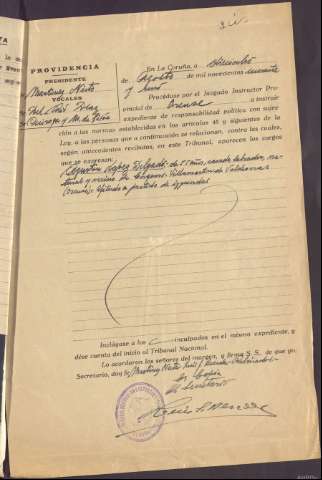 PROVIDENCIA
PRESIDENTE
Martinez Nieto
VOCALES
En La Coruña, a
de Agosto de mil novecientos cuarenta
y uno
Procédase por el Juzgado Instructor Pro-
vincial de Orense a instruir
expediente de responsabilidad política con suje-
ción a las normas establecidas en los artículos 45 y siguientes de la
Ley, a las personas que a continuación se relacionan, contra las cuales,
según antecedentes recibidos, en este Tribunal, aparecen los cargos
que se expresan.
Agustin Lopez Delgado, de 55 años, casado, labrador, na-
tural y vecino de Villamartin de Valdeorras
(Orense). Afiliado a partido de izquierdas
Inclúyase a los inculpados en el mismo expediente, y
dése cuenta del inicio al Tribunal Nacional.
Lo acordaron los señores del margen, y firma S. S. de que yo,
Secretario, doy fe. Martinez Nieto
Es copia
El Secretario